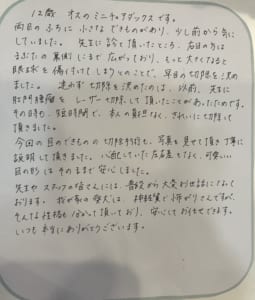 12歳 オスのミニチュアダックスです。
両目のふちに小さなできものがあり、少し前から気に
していました。先生に診て頂いたところ、右目の方は
まぶたの裏側にまで広がっており、もっと大きくなると
眼球を傷付けてしまうとのことで、早目の切除を決め
ました。迷わず切除を決めたのは、以前、先生に
肛門腫瘤をレーザー切除して頂いたことがあったためです。
その時も、短時間で、本人の負担なく、きれいに切除して
頂きました。
今回の目のできものの切除手術も、写真を見せて頂き丁寧に
説明して頂きました。心配していた左右差もなく、可愛い
目の形はそのままで安心しました。
先生やスタッフの皆さんには、普段から大変お世話になって
おります。我が家の愛犬は、神経質で怖がりさんですが、
そんな性格も分かって頂いており、安心しておまかせできます。
いつも本当にありがとうございます。